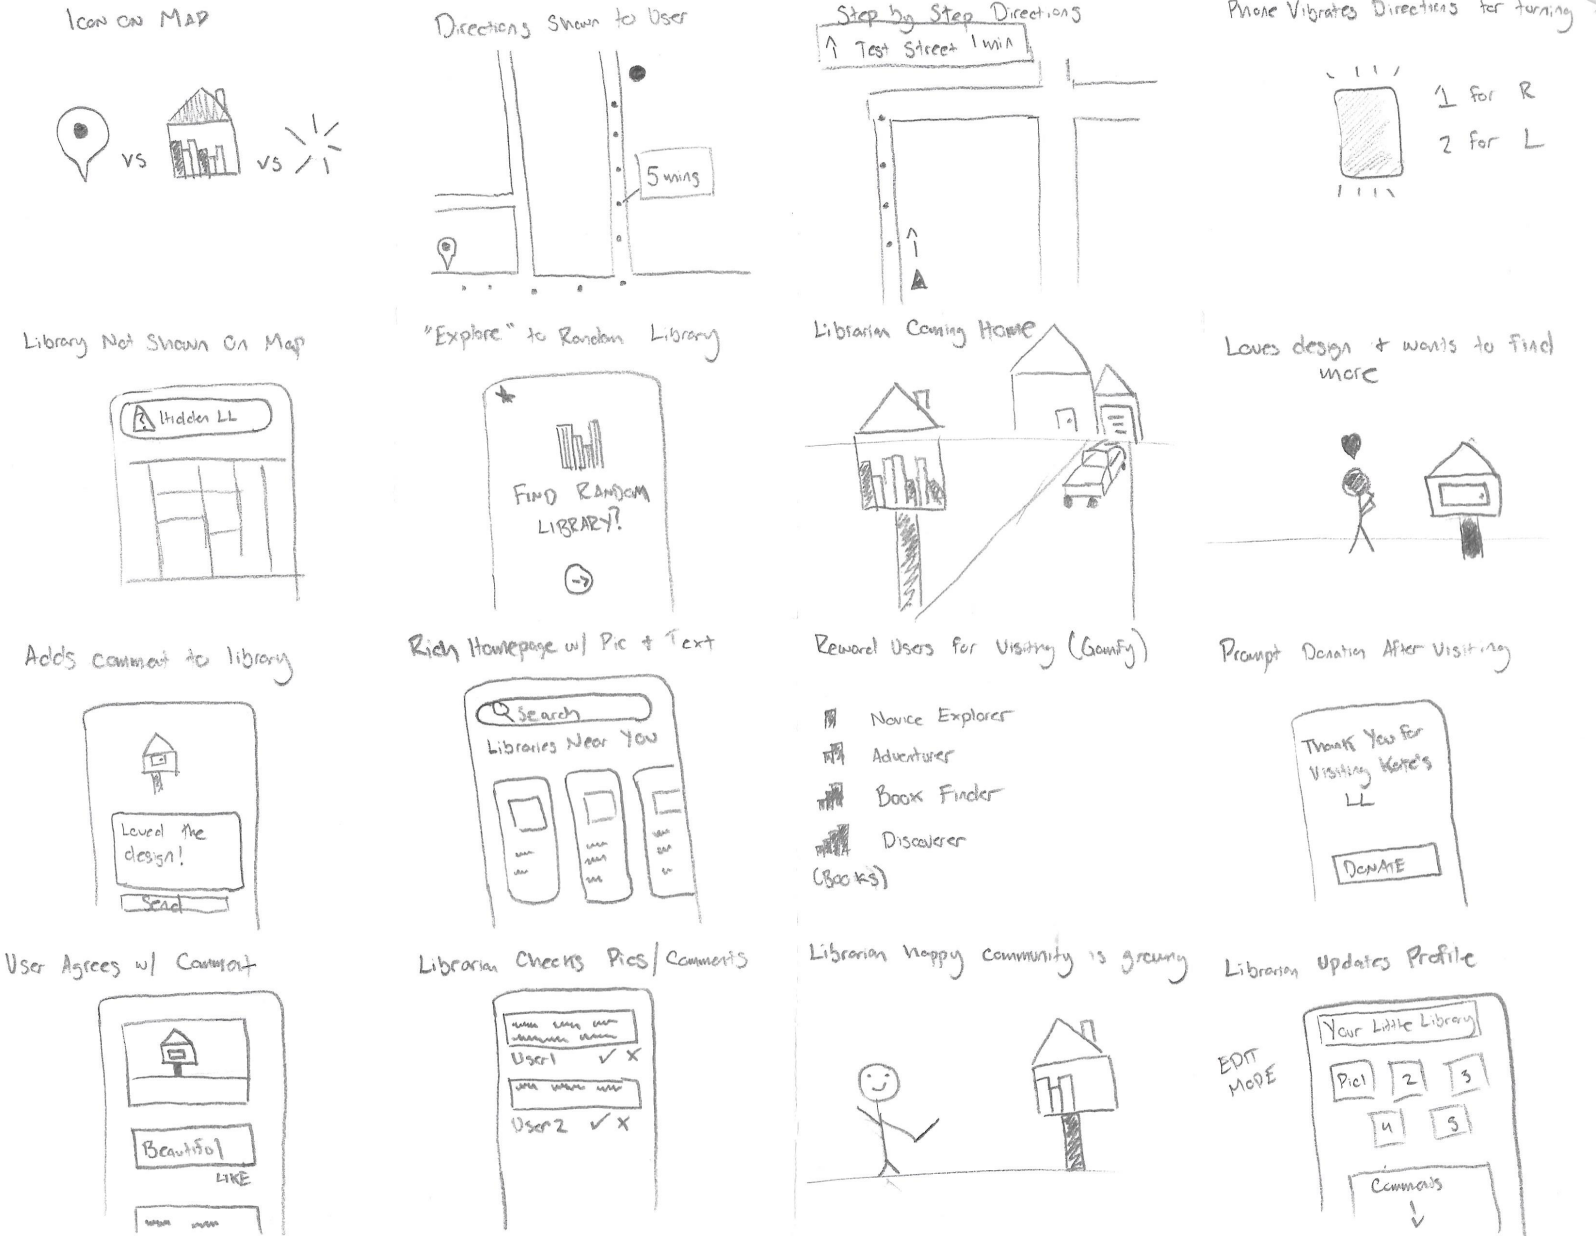 Icon on Map
vs
vs
Directions Shown to User
5 mins
Step by Step Directions
↑ Test Street 1 min
Phone Vibrates Directions for turning
1 for R
2 for L
Library Not Shown on Map
? Hidden LL
"Explore" to Random Library
FIND RANDOM
LIBRARY?
→
Librarian Coming Home
Loves design + wants to find
more
Adds comment to library
Loved the
design!
Send
Rich Homepage w/ Pic + Text
Search
Libraries Near You
Reward Users for Visiting (Gamify)
Novice Explorer
Adventurer
Book Finder
Discoverer
(Books)
Prompt Donation After Visiting
Thank You for
Visiting Kate's
LL
DONATE
User Agrees w/ Comment
Beautiful
LIKE
Librarian Checks Pics/Comments
User1 ✓ x
User2 ✓ x
Librarian happy community is growing
Librarian Updates Profile
EDIT
MODE
Your Little Library
Pic1 2 3
4 5
Comments
↓